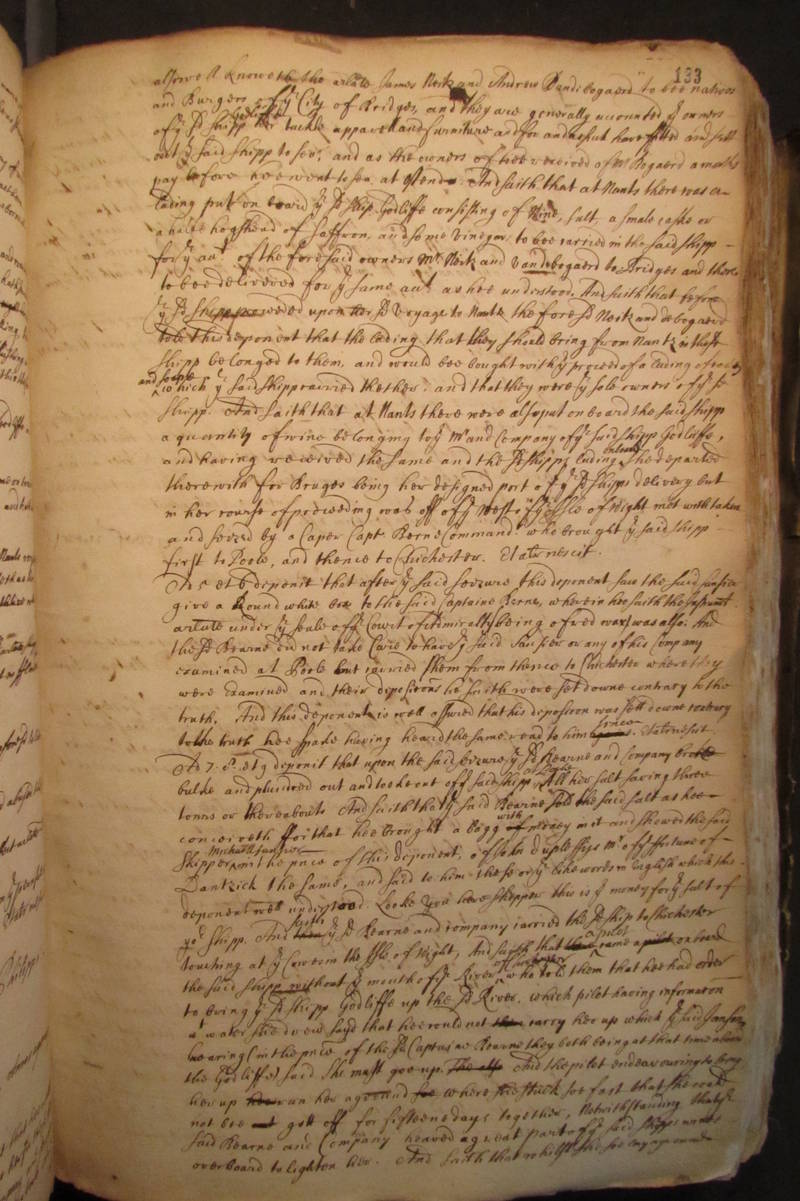 133
alsoe A knoweth the arlate James Neck and Andrew Vandebogaerd to bee natives
and Burgers of ye City of Bridges, and they are generally accounted ye owners
of ye sd shipp Godliffe her tackle apparell and furniture and for and as such have fitted and sett
out ye said shipp to sea, and as the owners of her received of Mr Bogaerd a months
pay before hee went to sea at Ostend. And saith that at Nants there was a
lading put on board ye sd ship Godliffe consisting of Wine, salt, a smale caske or
a halfe hogshead of Saffron, and some vinegar, to bee carried in the said shipp
for ye act of the foresaid owners Mr Neck and Vandebogaerd to Bridges and there
to bee delivered for ye same act as hee understood. And saith that before
ye sd shipp proceeded upon her sd voyage to Nants the foresd Neck and debogaerd
told this deponent that the lading that they should bring from Nants in the sd
shipp belonged to them, and would bee bought with ye proceed of a lading of
and which ye said shipp carried thether, and that they were ye sole owners of ye sd
shipp. And saith that at Nants there were alsoe put on board the said shipp
a quantity of wine belonging to ye Mr and Company of ye said shipp Godliffe,
and having received the same and the sd shipps lading she departed
therewith for Bruges being her designed port of ye sd shipps delivery but
in her course of proceeding was off of ye West of ye Isle of Wight met with taken
and seized by a Caper Capt Kerne Command who brought ye said shipp
first to Poole, and thence to Chichester. Et alr nescit.
As 5 et 6 deponit that after ye said seizure this deponent saw the said
give a Round white box to the said Captaine Kerne, wherein hee saith the
arlate under ye seale of ye Court of Admiralty being of red wax was also. And
the sd Kearne did not take Care to have ye said Jansen or any of his Company
examined at Poole but carried them from thence to Chichester where they
were examined and their depositions he saith were set downe contrary to the
truth. And this deponent is well assured that his deposition was sett downe contrary
to the truth hee spake having heard the same read to him since. Et alr nescit.
As 7. 8. et 9 deponit that upon the said seizure ye sd Kearne and Company broke
bulke and plundred out and tooke out of ye said shipp at Poole All her salt saving three
tonns or thereabouts And saith that ye said Kearne sold the said salt as hee
conceiveth ffor that hee brought a bagg with money in it and shewed the said
Skipper Michael Jansen in the prnce of this deponent, of John Mr of ye ffortune of
Dantzick the same, and said to him these or ye like words in English which this
deponent well understood. Looke you here skipper this is ye money for ye salt of
yor shipp. And saith ye sd Kearne and company carried the sd ship to Chichester
touching at ye Cow in the Isle of Wight, And saith that a pilot came on board
the said shipp without ye mouth of ye River of Chichester who told them that hee had order
to bring ye sd shipp Godliffe up the sd River. which pilot having information
wt water shee drew sayd that hee could not carry her up which ye said Jansen
hearing (in the prnce of the sd Captne Kearne they both being at that time aboard
the Godliffe) said she must goe up. And the pilot endeavouring to bring
her up ran her aground where shee stuck soe fast that she could
not bee gott off for fifteene days together, Notwithstanding that ye
said Kearne and Company heaved a great part of ye said shipps wines
overboard to lighten her. And saith that whilst shee soe lay aground